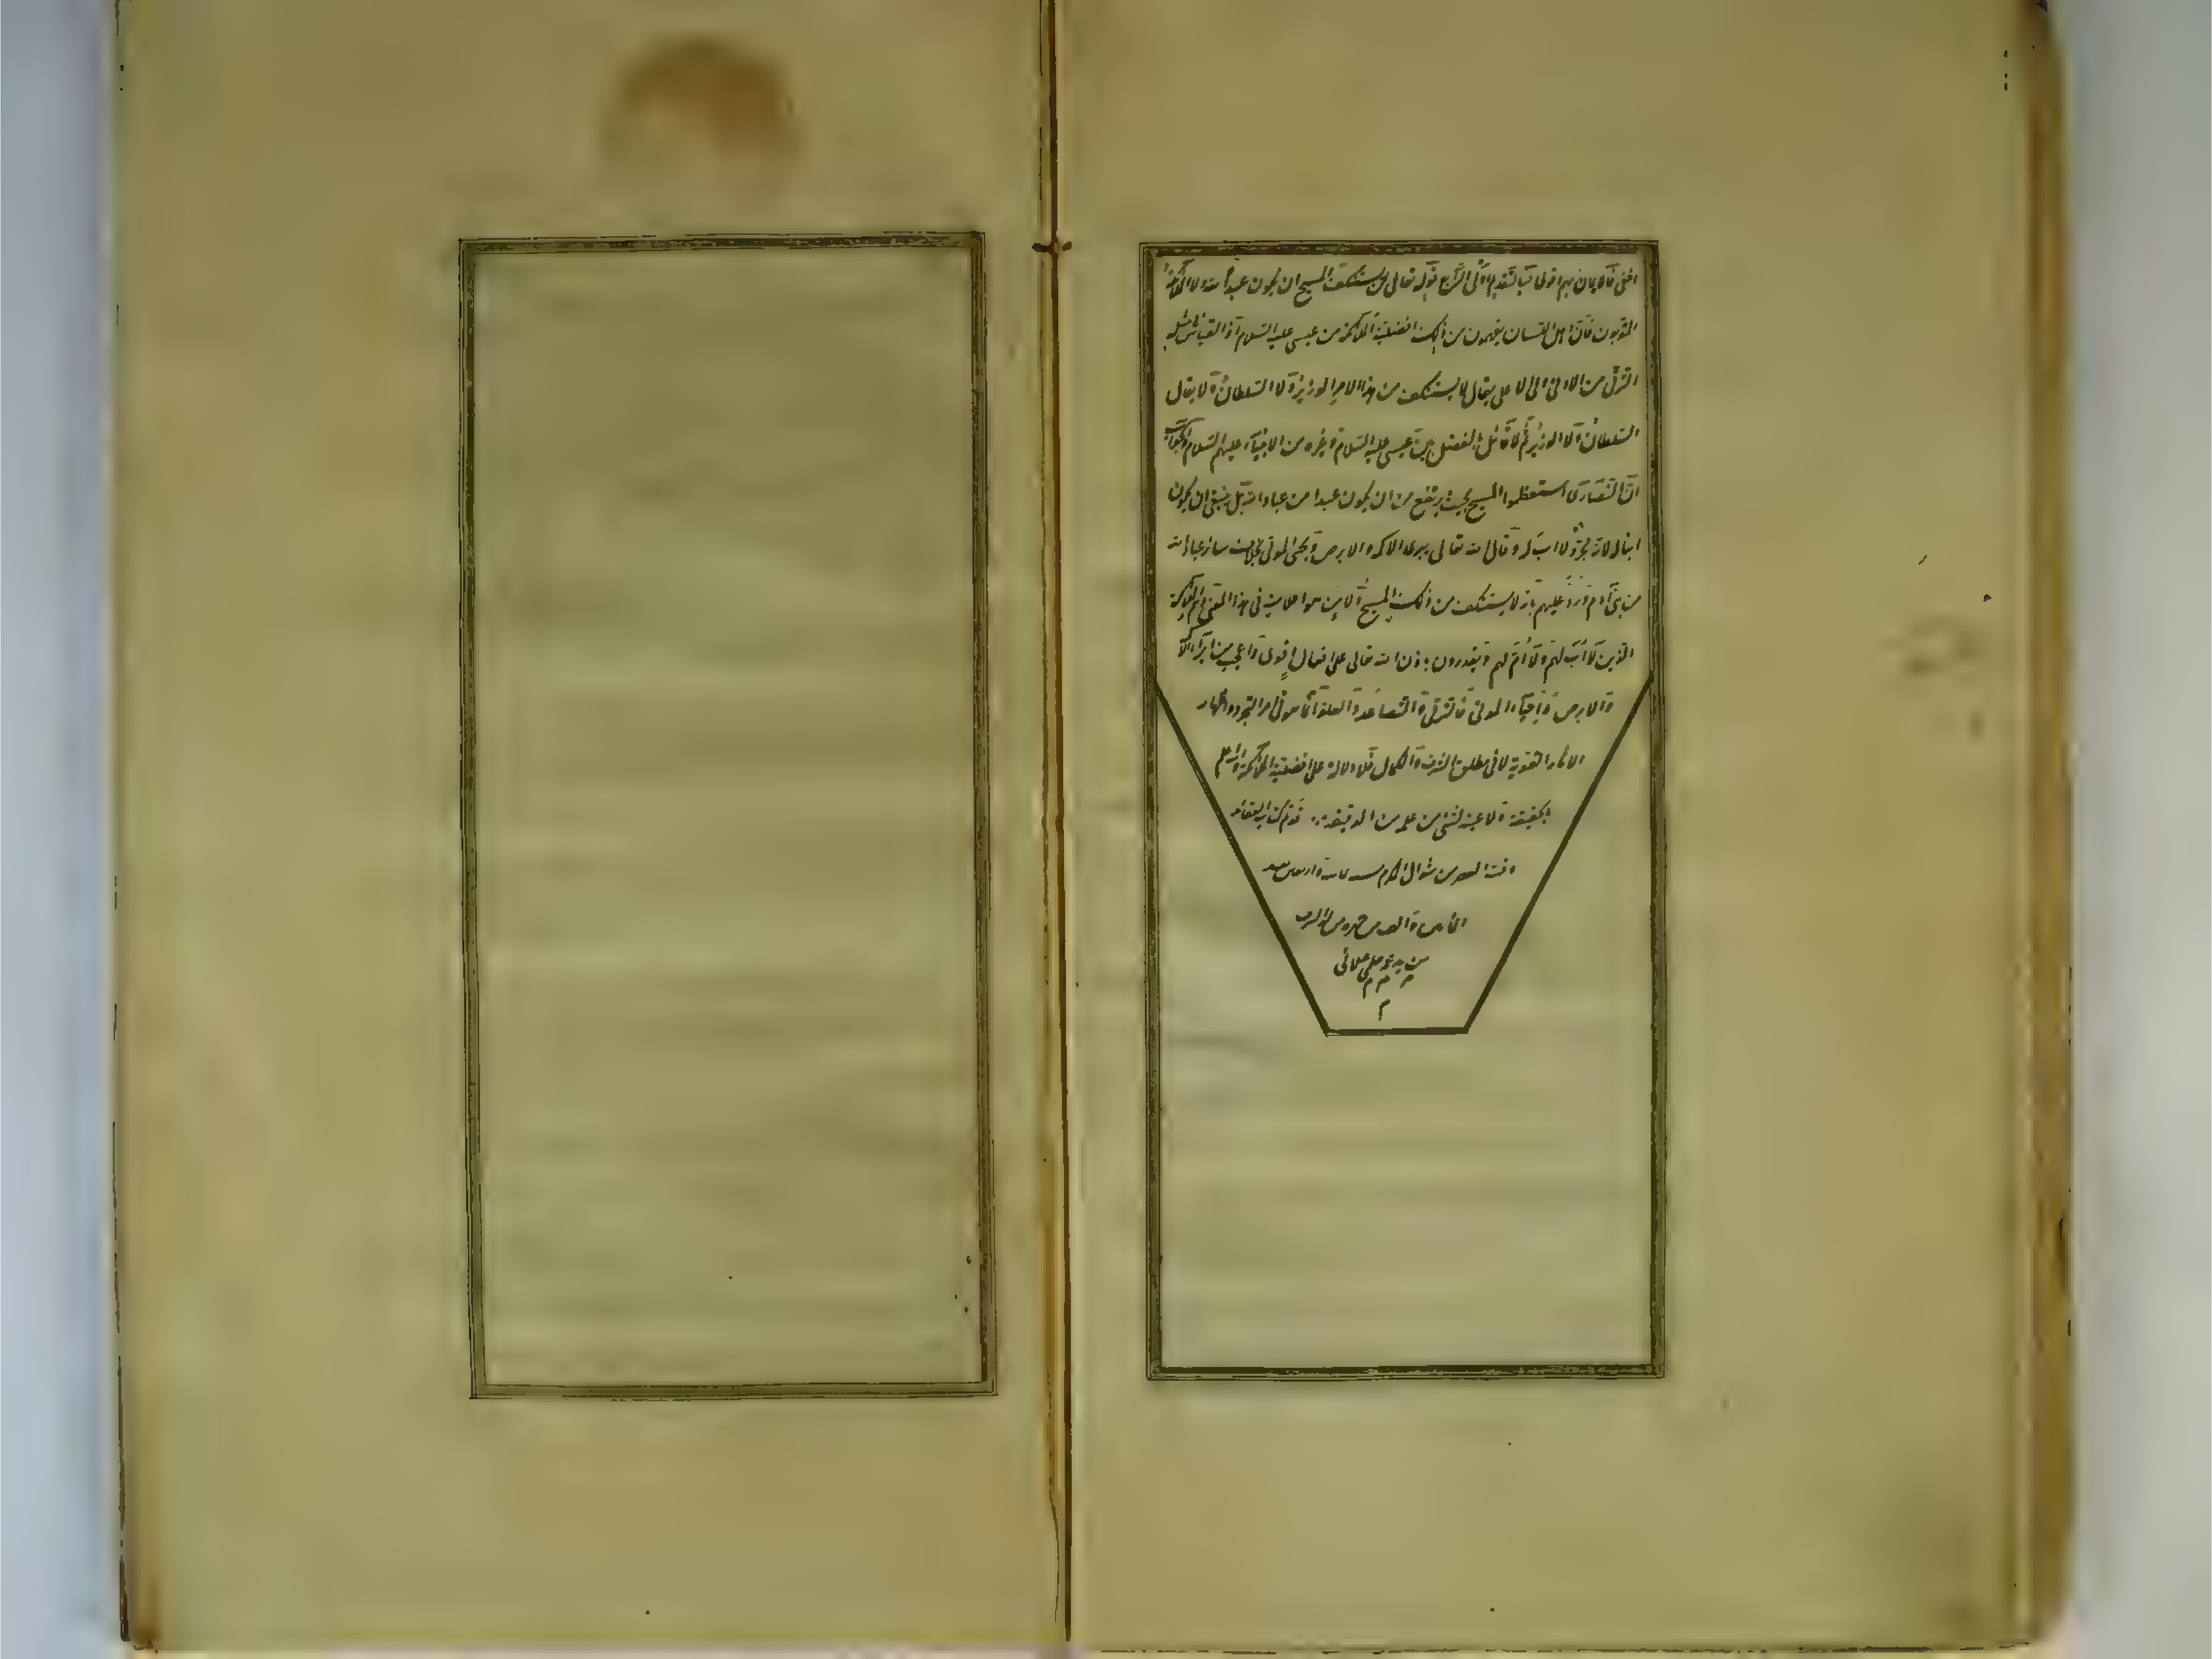 اخفى فالايمان بهم اقوى وبالتقديم اولى الرابع قوله تعالى لن يستنكف المسيح ان يكون عبدا لله ولا الملائكة
المقربون فان اهل اللسان يفهمون من ذلك افضلية الملائكة من عيسى عليه السلام اذ القياس فى مثله
الترقى من الادنى الى الاعلى يقال لا يستنكف من هذا الامر الوزير ولا السلطان ولا يقال
السلطان ولا الوزير ثم لا قائل بالفصل بين عيسى عليه السلام وغيره من الانبياء عليهم السلام والجواب
ان النصارى استعظموا المسيح بحيث يرتفع من ان يكون عبدا من عباد الله بل ينبغى ان يكون
ابنا له لانه مجرد لا اب له وقال الله تعالى يبرئ الاكمه والابرص ويحيى الموتى بخلاف سائر عباد الله
من بنى آدم فرد عليهم بانه لا يستنكف من ذلك المسيح ولا من هو اعلا منه فى هذا المعنى وهم الملائكة
الذين لا اب لهم ولا ام لهم ويقدرون باذن الله تعالى على افعال اقوى واعجب من ابراء الاكمه
والابرص واحياء الموتى فالترقى والتصاعد والعلو انما هو فى امر التجرد واظهار
الاثار القوية لا فى مطلق الشرف والكمال فلا دلالة على افضلية الملائكة والله اعلم
بحقيقة ولا عبد لشئ من علمه من الدقيقة قد تم كتاب العقائد
وقت العصر من شوال المكرم سنه واربعين بعد
المأتين والف من هجرة من له الشرف
من يد علي
م م م
م